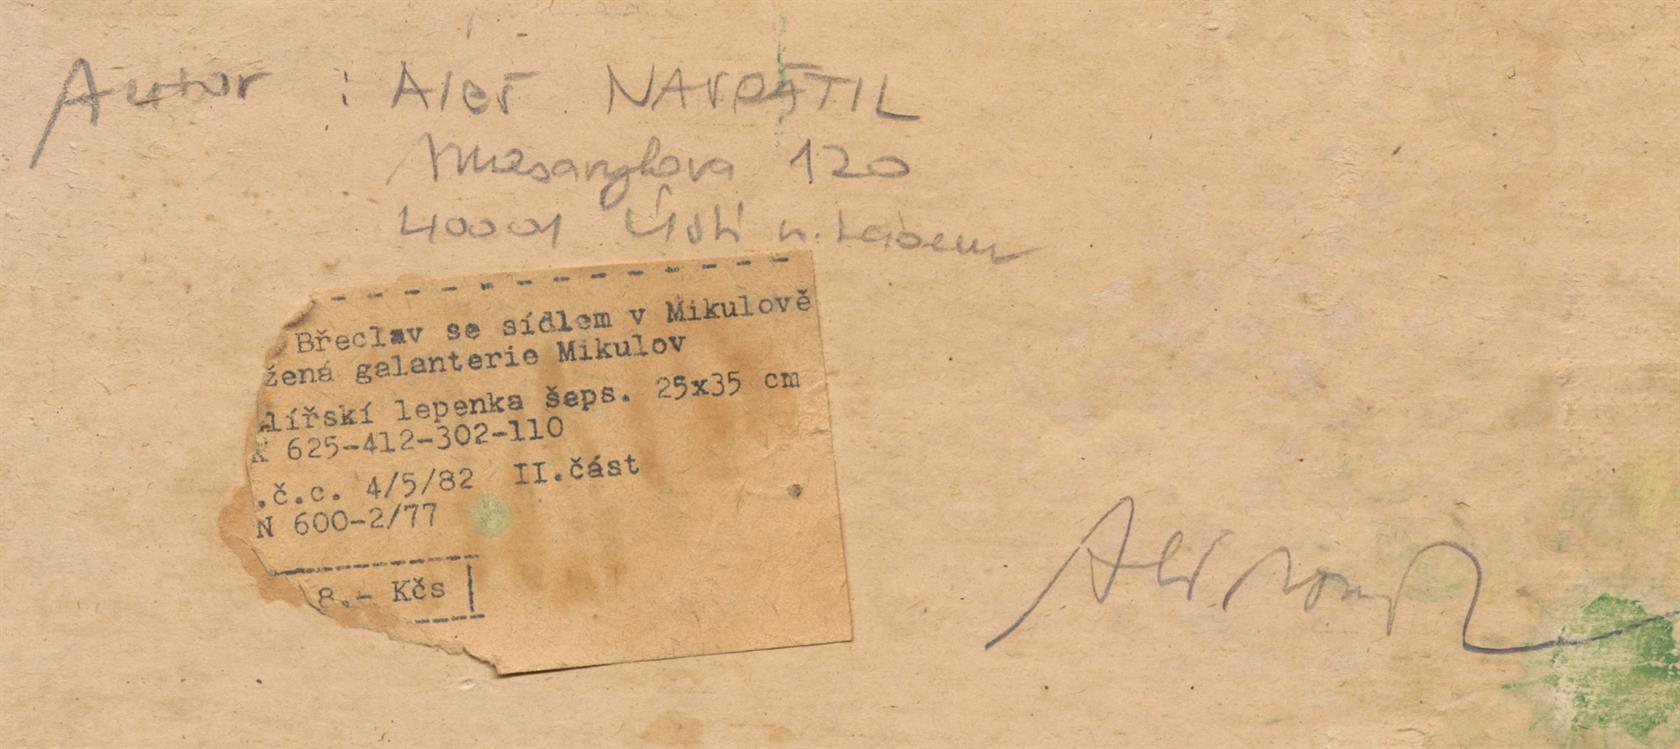 Autor : Aleš NAVRÁTIL
Mezsanghova 120
40001 Ústí n. Labem
Břeclav se sídlem v Mikulově
žená galanterie Mikulov
lířskí lepenka šeps. 25x35 cm
K 625-412-302-110
.č.c. 4/5/82 II.část
N 600-2/77
8.- Kčs
Aleš